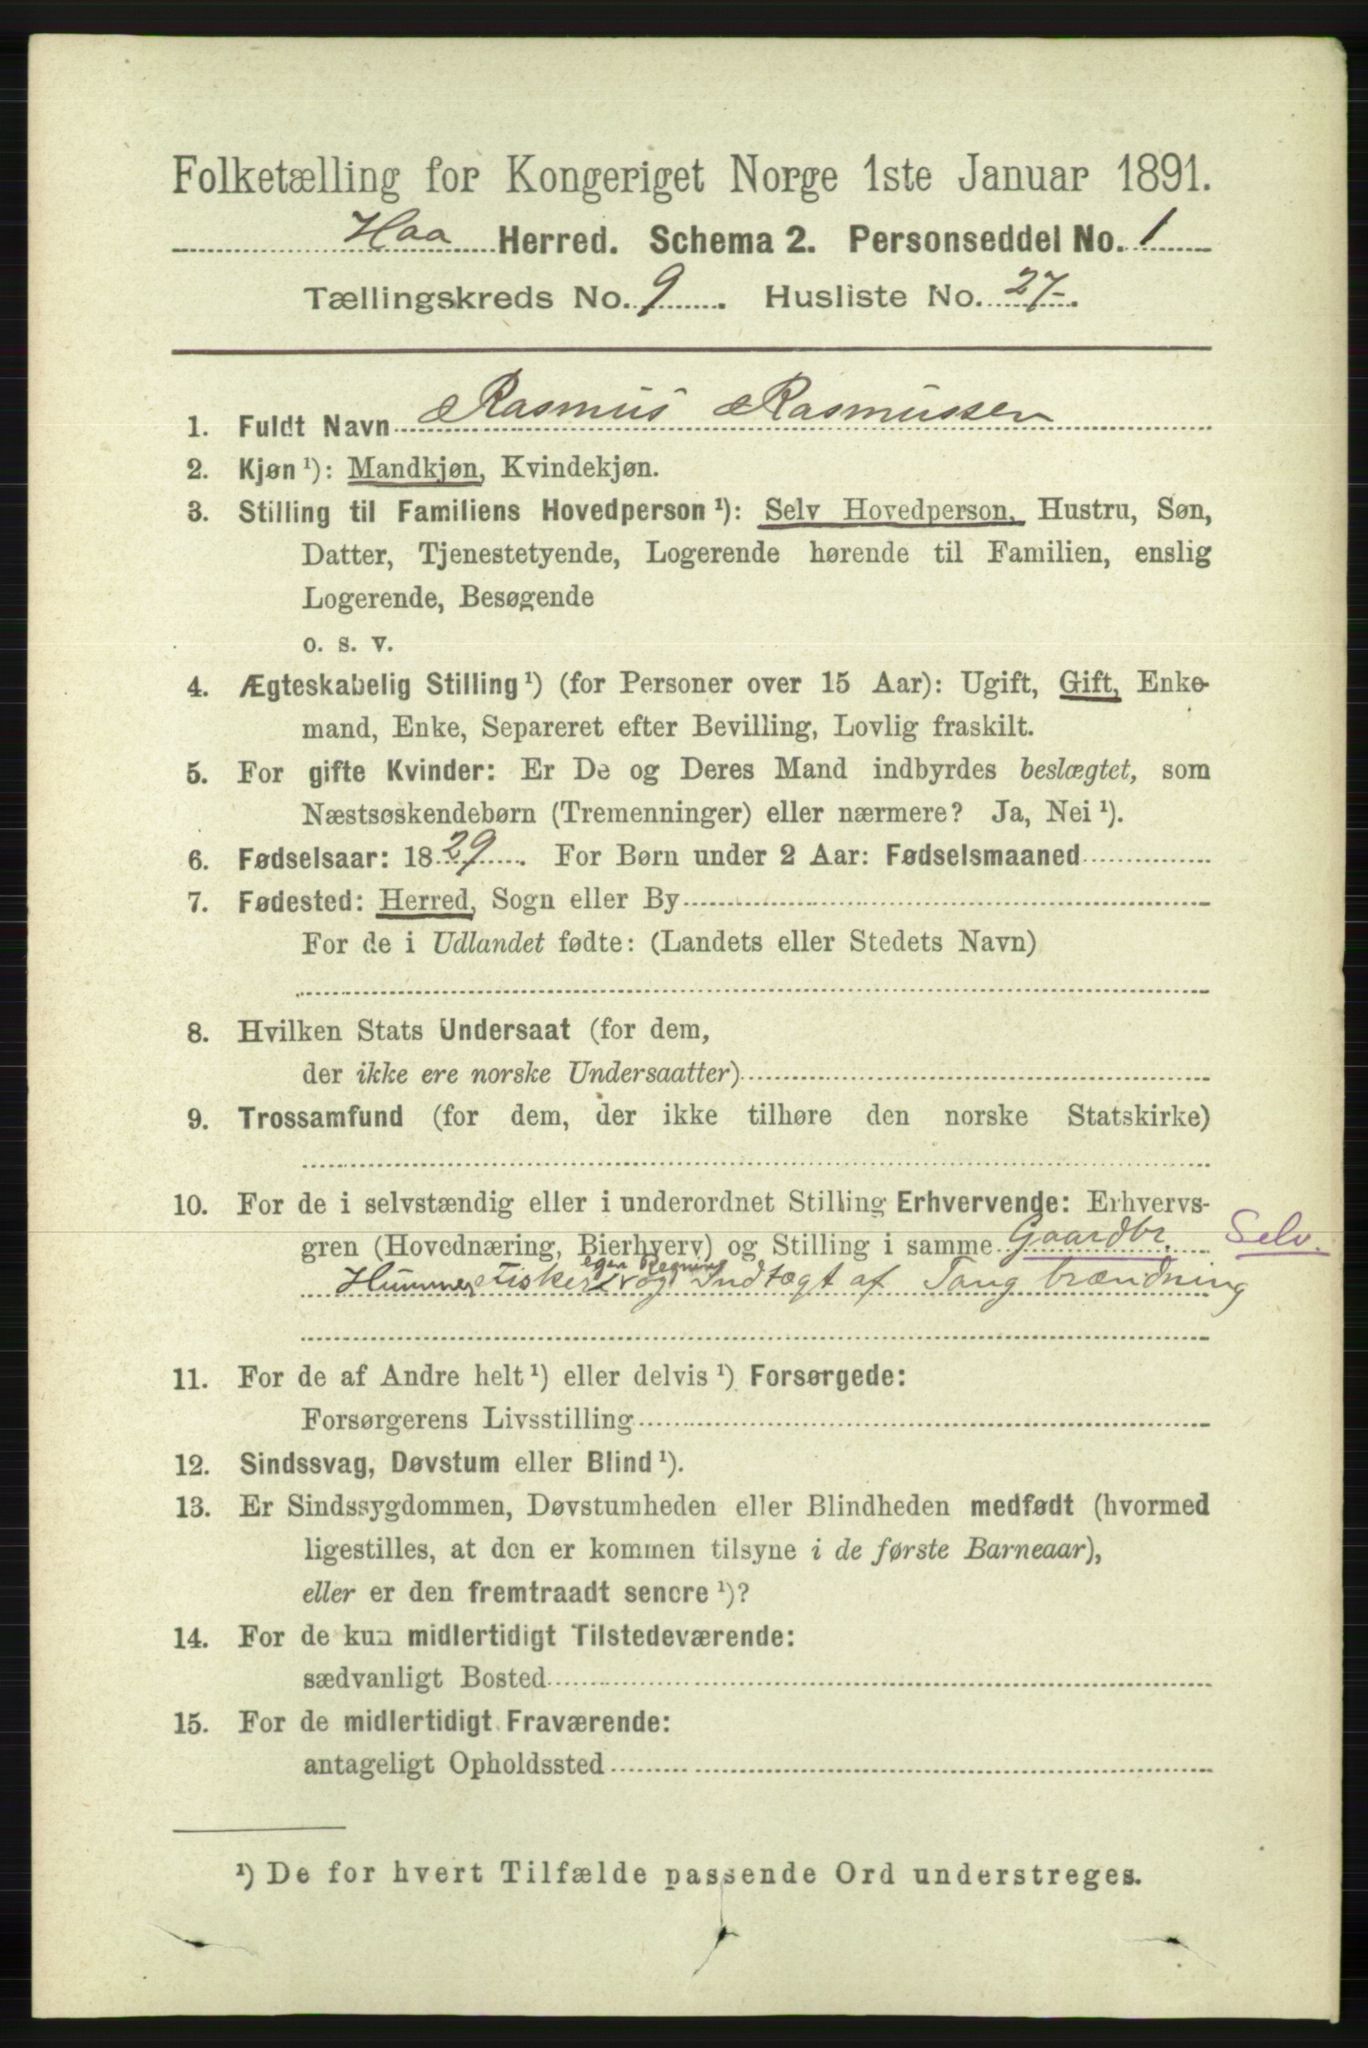 Folketælling for Kongeriget Norge 1ste Januar 1891.
Haa Herred. Schema 2. Personseddel No. 1
Tællingskreds No. 9. Husliste No. 27.
1. Fuldt Navn Rasmus Rasmussen
2. Kjøn ¹): Mandkjøn, Kvindekjøn.
3. Stilling til Familiens Hovedperson ¹): Selv Hovedperson, Hustru, Søn,
Datter, Tjenestetyende, Logerende hørende til Familien, enslig
Logerende, Besøgende
o. s. v.
4. Ægteskabelig Stilling ¹) (for Personer over 15 Aar): Ugift, Gift, Enke-
mand, Enke, Separeret efter Bevilling, Lovlig fraskilt.
5. For gifte Kvinder: Er De og Deres Mand indbyrdes beslægtet, som
Næstsøskendebørn (Tremenninger) eller nærmere? Ja, Nei ¹).
6. Fødselsaar: 1829. For Børn under 2 Aar: Fødselsmaaned
7. Fødested: Herred, Sogn eller By
For de i Udlandet fødte: (Landets eller Stedets Navn)
8. Hvilken Stats Undersaat (for dem,
der ikke ere norske Undersaatter)
9. Trossamfund (for dem, der ikke tilhøre den norske Statskirke)
10. For de i selvstændig eller i underordnet Stilling Erhvervende: Erhvervs-
gren (Hovednæring, Bierhverv) og Stilling i samme Gaardbr. Selv.
egen Regning
Hummerfisker og Indtægt af Tang brændning
11. For de af Andre helt ¹) eller delvis ¹) Forsørgede:
Forsørgerens Livsstilling
12. Sindssvag, Døvstum eller Blind ¹).
13. Er Sindssygdommen, Døvstumheden eller Blindheden medfødt (hvormed
ligestilles, at den er kommen tilsyne i de første Barneaar),
eller er den fremtraadt senere ¹)?
14. For de kun midlertidigt Tilstedeværende:
sædvanligt Bosted
15. For de midlertidigt Fraværende:
antageligt Opholdssted
¹) De for hvert Tilfælde passende Ord understreges.